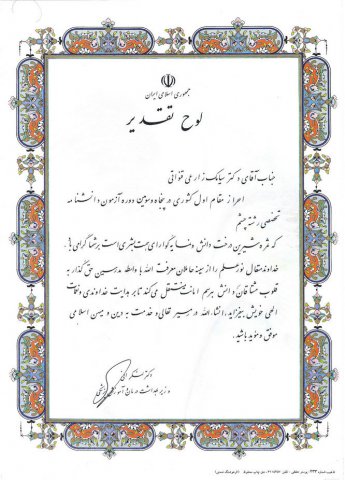 جمهوری اسلامی ایران
لوح تقدیر
جناب آقای دکتر سیامک زارعی قنواتی
احراز مقام اول کشوری در پنجاه و سومین دوره آزمون دانشنامه
تخصصی رشته چشم
که ثمره شیرین درخت دانش و نضایه گوارای بشری است بر شما گرامی باد.
خداوند متعال نور علم را از سینه حاملان معرفت الله با واسطه مدرسین حق گذار به
قلوب مشتاقان دانش به رسم امانت منتقل می کند تا بر هدایت خداوندی و نجات
الهی خویش بیفزاید. انشاءالله در مسیر تعالی و خدمت به دین و میهن اسلامی
موفق و مؤید باشید.
وزیر بهداشت درمان و آموزش پزشکی